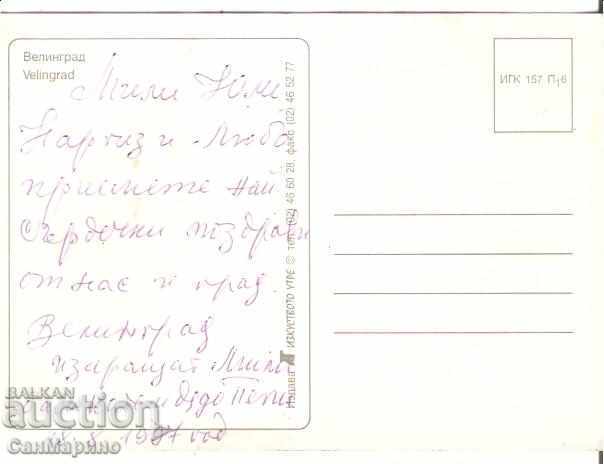 Велинград
Velingrad
ИГК 157 П16
Мили Юли
Наргиз и Любо
приемете най
Сърдечни поздрави
от нас и град
Велинград
изпращат Мими
и дядо Пепи
8 1997 год
Издава ИЗКУСТВОТО УТРЕ © тел. (02) 46 60 28, факс (02) 46 52 77
BALKAN
auction
СанМарино